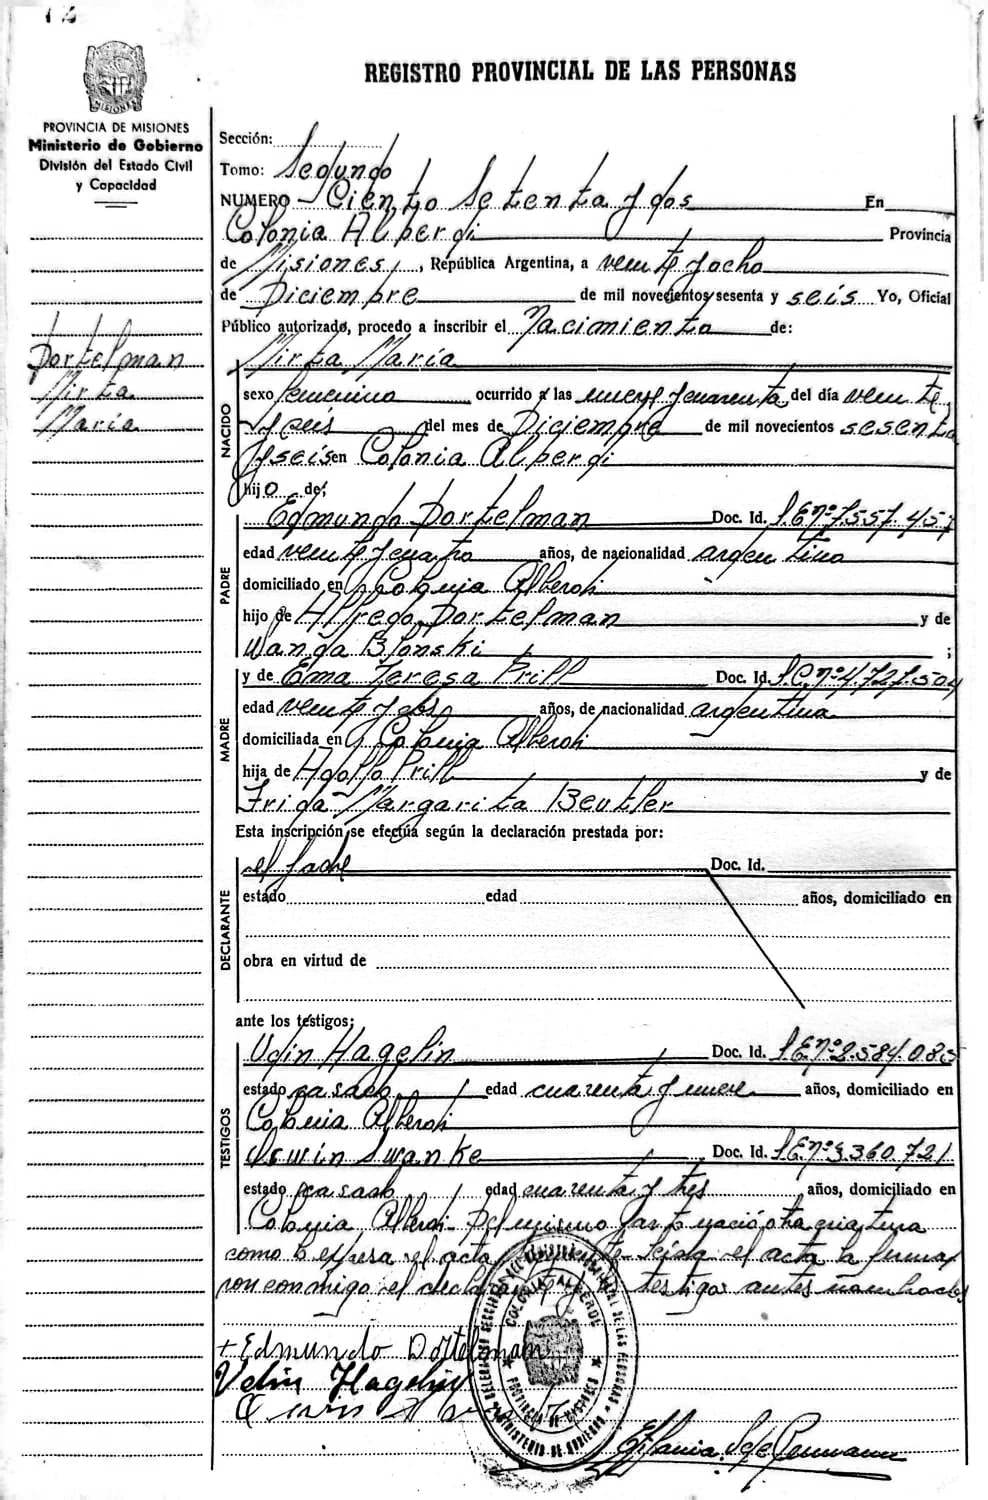 REGISTRO PROVINCIAL DE LAS PERSONAS
MISIONES
PROVINCIA DE MISIONES
Ministerio de Gobierno
División del Estado Civil
y Capacidad
Dortelman
Mirta
María
Sección:
Tomo: Segundo
NUMERO Ciento Setenta y dos En
Colonia Alberdi Provincia
de Misiones, República Argentina, a veinte y ocho
de Diciembre de mil novecientos sesenta y seis Yo, Oficial
Público autorizado, procedo a inscribir el Nacimiento de:
NACIDO
Mirta María
sexo femenino ocurrido a las nueve y cuarenta del día veinte
y seis del mes de Diciembre de mil novecientos sesenta
y seis en Colonia Alberdi
hijo de:
PADRE
Edmundo Dortelman Doc. Id. L.E.nº7.557.457
edad veinte y cuatro años, de nacionalidad argentino
domiciliado en Colonia Alberdi
hijo de Alfredo Dortelman y de
Wanda Blonski ;
MADRE
y de Ema Teresa Prill Doc. Id. L.C.nº4.727.504
edad veinte y dos años, de nacionalidad argentina
domiciliada en Colonia Alberdi
hija de Adolfo Prill y de
Frida Margarita Beutler
Esta inscripción se efectúa según la declaración prestada por:
DECLARANTE
el padre Doc. Id.
estado edad años, domiciliado en
obra en virtud de
ante los testigos;
TESTIGOS
Udin Hagelin Doc. Id. L.E.nº2.584.085
estado casado edad cuarenta y nueve años, domiciliado en
Colonia Alberdi
Swanke Doc. Id. L.E.nº3.360.721
estado casado edad cuarenta y tres años, domiciliado en
Colonia Alberdi Del mismo parto nació otra criatura
como lo expresa el acta Leída el acta la firman
con conmigo el declarante y testigos antes nombrados
+ Edmundo Dortelman
Hagelin
COLONIA ALBERDI
PROVINCIA DE MISIONES
MINISTERIO DE GOBIERNO